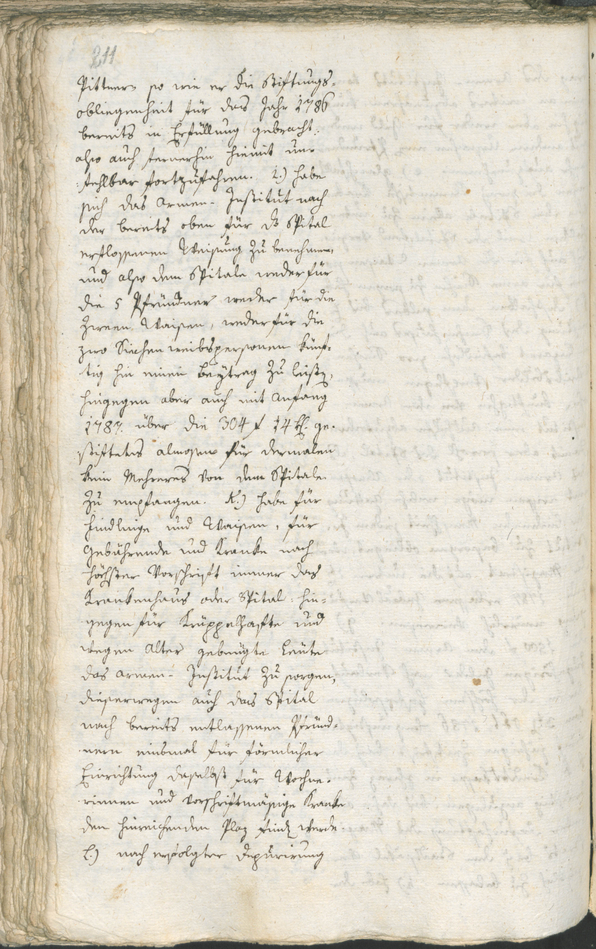 211
Pittner so wie er die Stiftungs-
obliegenheit für das Jahr 1786
bereits in Erfüllung gebracht,
also auch fernerhin hiemit unr
fehlbar fortzufahren. 2.) habe
sich das Armen-Institut nach
der bereits oben für das Spital
erflossenen Weisung zu benehmen,
und also dem Spitale weder für
die 5 Pfründner weder für die
zween Waisen, weder für die
zwo Siechen weibspersonen künf-
tig hin einen Beytrag zu leisten,
hingegen aber auch mit Anfang
1787. über die 304 f 14 kr. ge-
stiftetes Almosen für dermalen
kein Mehreres von dem Spitale
zu empfangen. K.) habe für
Findlinge und Waisen, für
Gebährende und Kranke nach
höchster Vorschrift immer das
Krankenhaus oder Spital hin-
gegen für Krüppelhafte und
wegen Alter gebeugte Leute
das Armen-Institut zu sorgen,
dieserwegen auch das Spital
nach bereits entlassenen Pfründ-
nern einmal für förmlicher
Einrichtung daselbst für Wöchne-
rinnen und vorschriftmäsige Kranke
den hinreichenden Plaz finden werde.
L.) nach erfolgter Depurirung